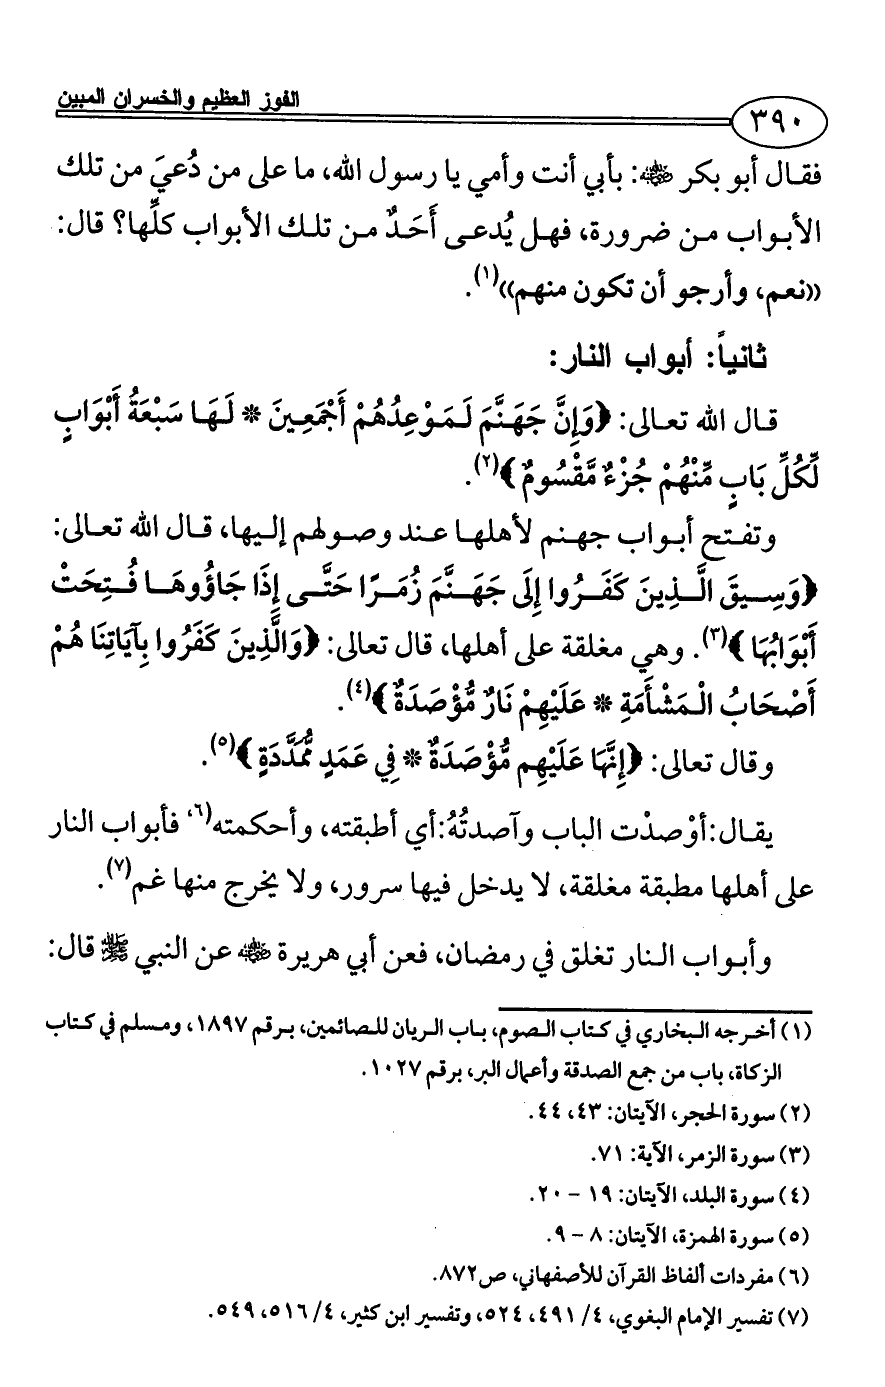 الفوز العظيم والخسران المبين
٣٩٠
فقال أبو بكر ﷺ: بأبي أنت وأمي يا رسول الله، ما على من دُعيَ من تلك
الأبواب من ضرورة، فهل يُدعى أَحَدٌ من تلك الأبواب كلِّها؟ قال:
((نعم، وأرجو أن تكون منهم))(١).
ثانياً: أبواب النار:
قال الله تعالى: ﴿وَإِنَّ جَهَنَّمَ لَمَوْعِدُهُمْ أَجْمَعِينَ * لَهَا سَبْعَةُ أَبْوَابٍ
لِّكُلِّ بَابٍ مِّنْهُمْ جُزْءٌ مَّقْسُومٌ﴾(٢).
وتفتح أبواب جهنم لأهلها عند وصولهم إليها، قال الله تعالى:
﴿وَسِيقَ الَّذِينَ كَفَرُوا إِلَى جَهَنَّمَ زُمَرًا حَتَّى إِذَا جَاؤُوهَا فُتِحَتْ
أَبْوَابُهَا﴾(٣). وهي مغلقة على أهلها، قال تعالى: ﴿وَالَّذِينَ كَفَرُوا بِآيَاتِنَا هُمْ
أَصْحَابُ الْمَشْأَمَةِ * عَلَيْهِمْ نَارٌ مُّؤْصَدَةٌ﴾(٤).
وقال تعالى: ﴿إِنَّهَا عَلَيْهِم مُّؤْصَدَةٌ * فِي عَمَدٍ مُّمَدَّدَةٍ﴾(٥).
يقال:أوْصدْت الباب وآصدتُهُ:أي أطبقته، وأحكمته(٦)، فأبواب النار
على أهلها مطبقة مغلقة، لا يدخل فيها سرور، ولا يخرج منها غم(٧).
وأبواب النار تغلق في رمضان، فعن أبي هريرة ﵁ عن النبي ﷺ قال:
(١) أخرجه البخاري في كتاب الصوم، باب الريان للصائمين، برقم ١٨٩٧، ومسلم في كتاب
الزكاة، باب من جمع الصدقة وأعمال البر، برقم ١٠٢٧.
(٢) سورة الحجر، الآيتان: ٤٣، ٤٤.
(٣) سورة الزمر، الآية: ٧١.
(٤) سورة البلد، الآيتان: ١٩ – ٢٠.
(٥) سورة الهمزة، الآيتان: ٨ – ٩.
(٦) مفردات ألفاظ القرآن للأصفهاني، ص٨٧٢.
(٧) تفسير الإمام البغوي، ٤/ ٤٩١، ٥٢٤، وتفسير ابن كثير، ٤/ ٥١٦، ٥٤٩.